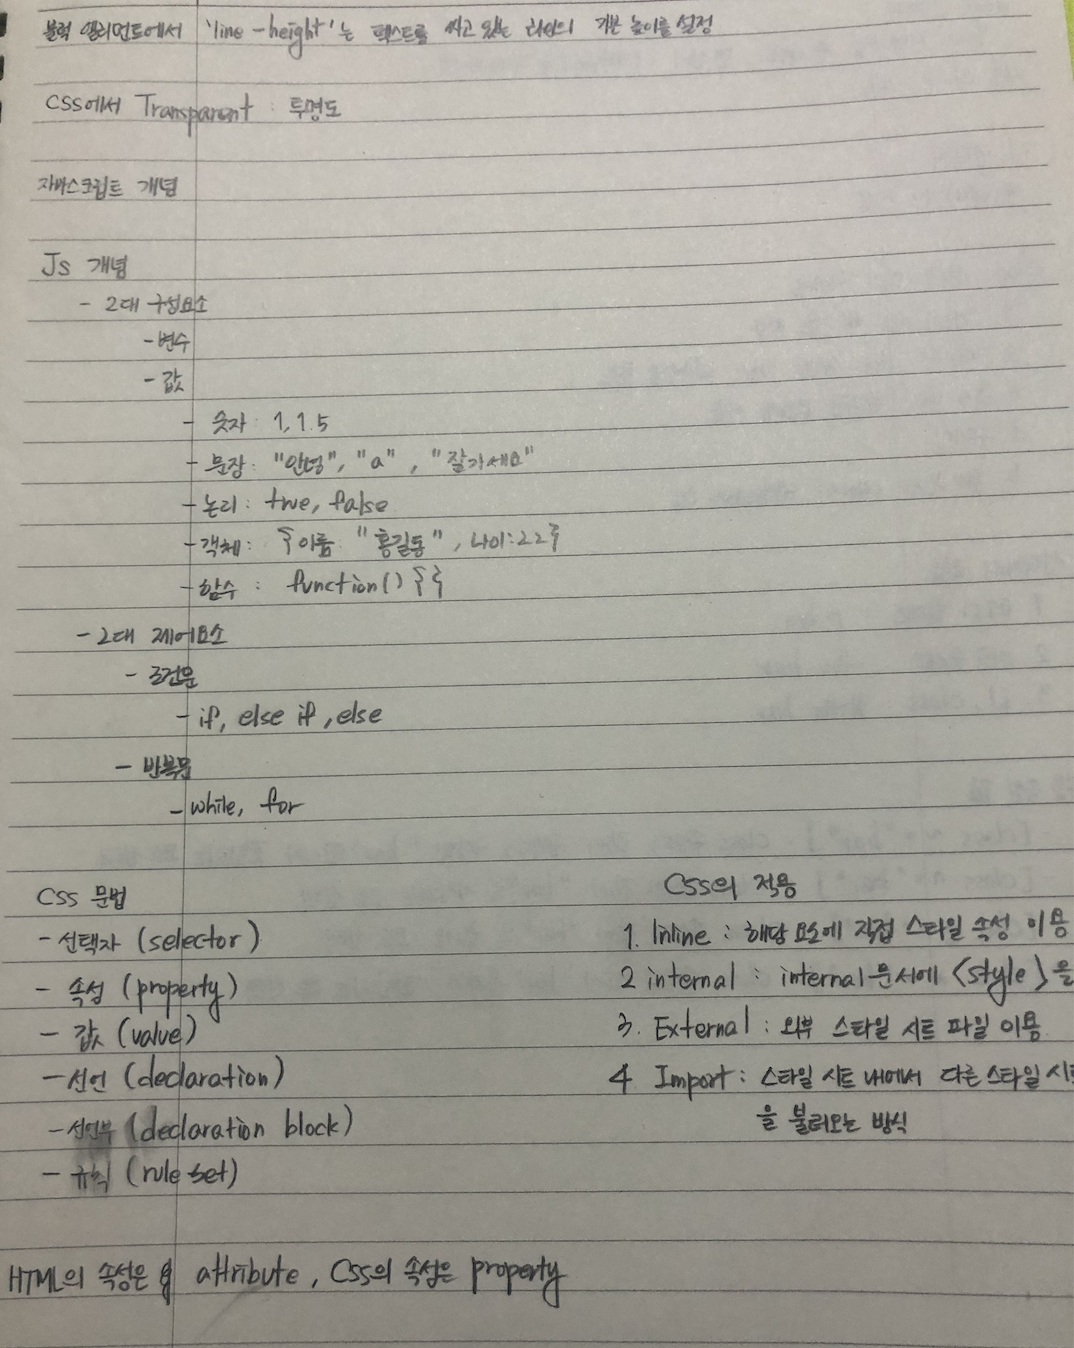 블럭 엘리먼트에서 'line-height'는 텍스트를 싸고 있는 라인의 기본 높이를 설정
CSS에서 Transparent : 투명도
자바스크립트 개념
Js 개념
- 2대 구성요소
- 변수
- 값
- 숫자 : 1, 1.5
- 문장 : "안녕", "a", "잘가세요"
- 논리 : true, false
- 객체 : {이름 : "홍길동", 나이:22}
- 함수 : function() {}
- 2대 제어요소
- 조건문
- if, else if, else
- 반복문
- while, for
CSS 문법
- 선택자 (selector)
- 속성 (property)
- 값 (value)
- 선언 (declaration)
- 선언부 (declaration block)
- 규칙 (rule set)
CSS의 적용
1. Inline : 해당 요소에 직접 스타일 속성 이용
2 internal : internal 문서에 <style>을
3. External : 외부 스타일 시트 파일 이용
4 Import : 스타일 시트 내에서 다른 스타일 시트
을 불러오는 방식
HTML의 속성은 attribute, CSS의 속성은 property